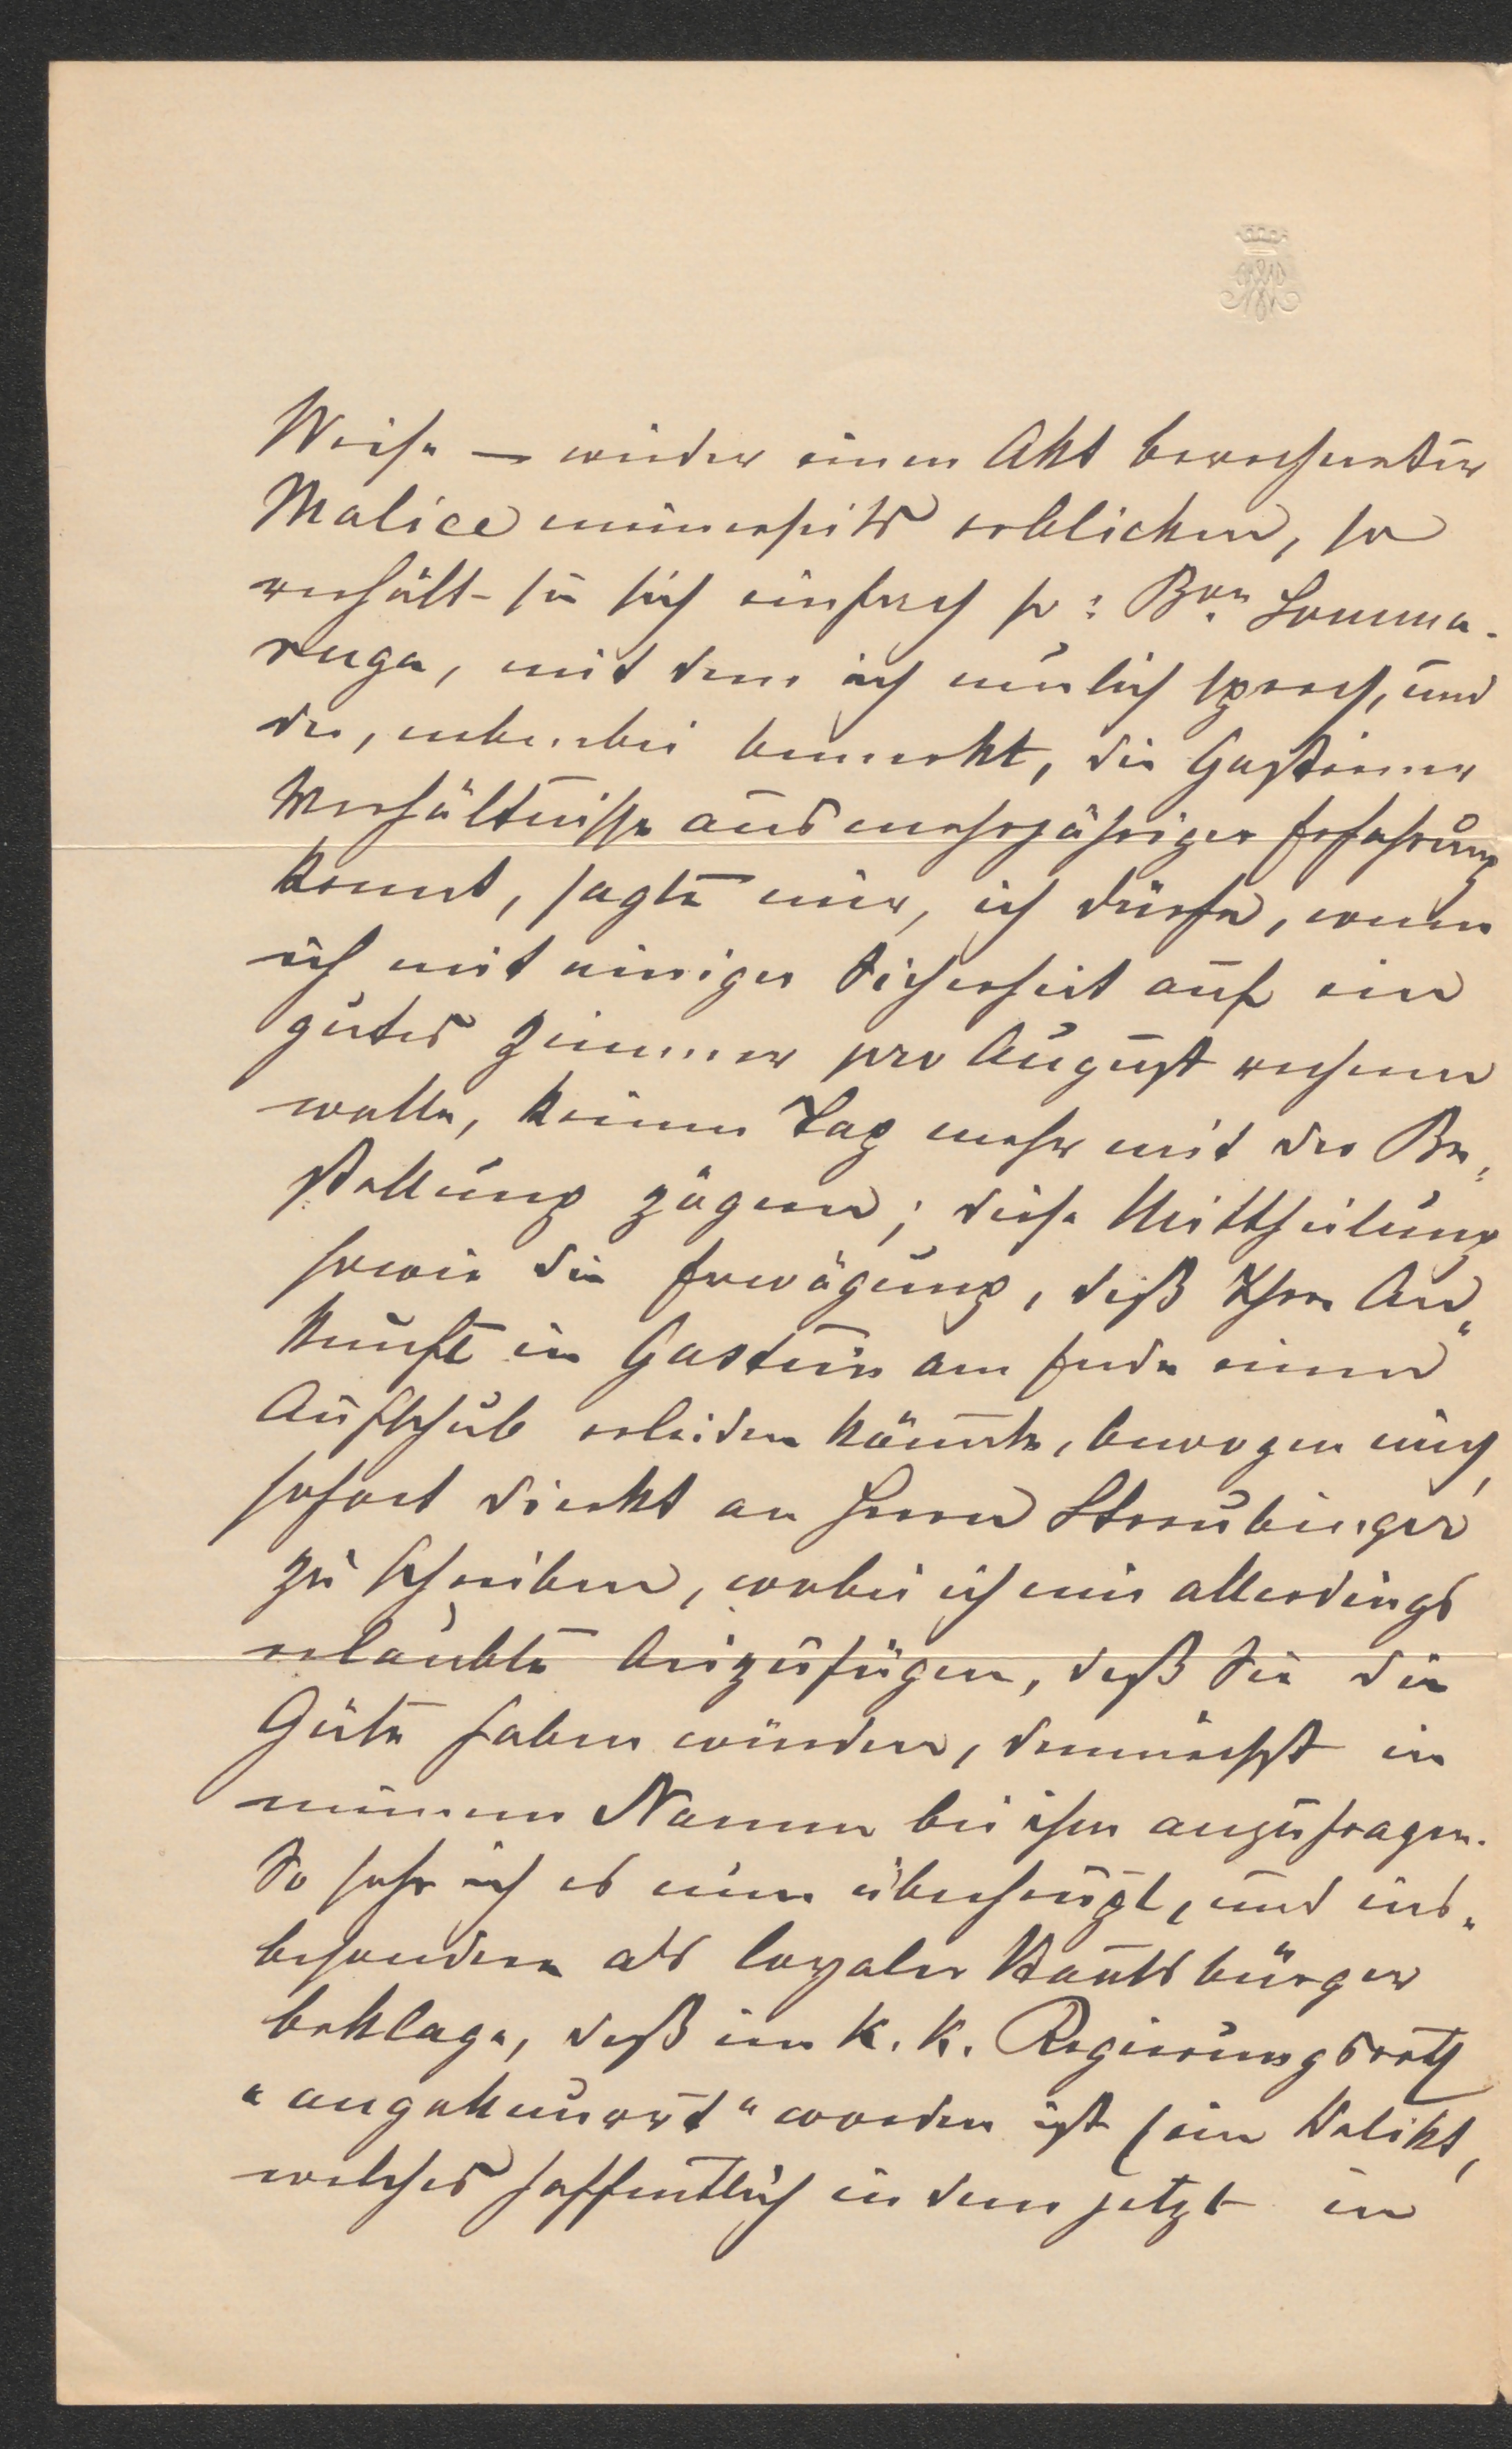 Weise — wieder einen Akt berechneter
Malice meinerseits erblicken, so
verhält sie sich einfach so: Bon Somma-
ruga, mit dem ich neulich sprach, und
der, nebenbei bemerkt, die Gasteiner
Verhältnisse aus mehrjähriger Erfahrung
kennt, sagte mir, ich dürfe, wenn
ich mit einiger Sicherheit auf ein
gutes Zimmer pro August rechnen
wolle, keinen Tag mehr mit der Be„
stellung zögern; diese Mittheilung
sowie die Erwägung, daß Ihre An„
kunft in Gastein am Ende einen
Aufschub erleiden könnte, bewogen mich,
sofort direkt an Herrn Straubinger
zu schreiben, wobei ich mir allerdings
erlaubte beizufügen, daß Sie die
Güte haben würden, demnächst in
meinem Namen bei ihm anzufragen.
So sehr ich es nun überhaupt, und ins„
besondere als loyaler Staatsbürger
beklage, daß ein K. K. Regierungsrath
"angeknurrt" worden ist (ein Delikt,
welches hoffentlich in dem jetzt in